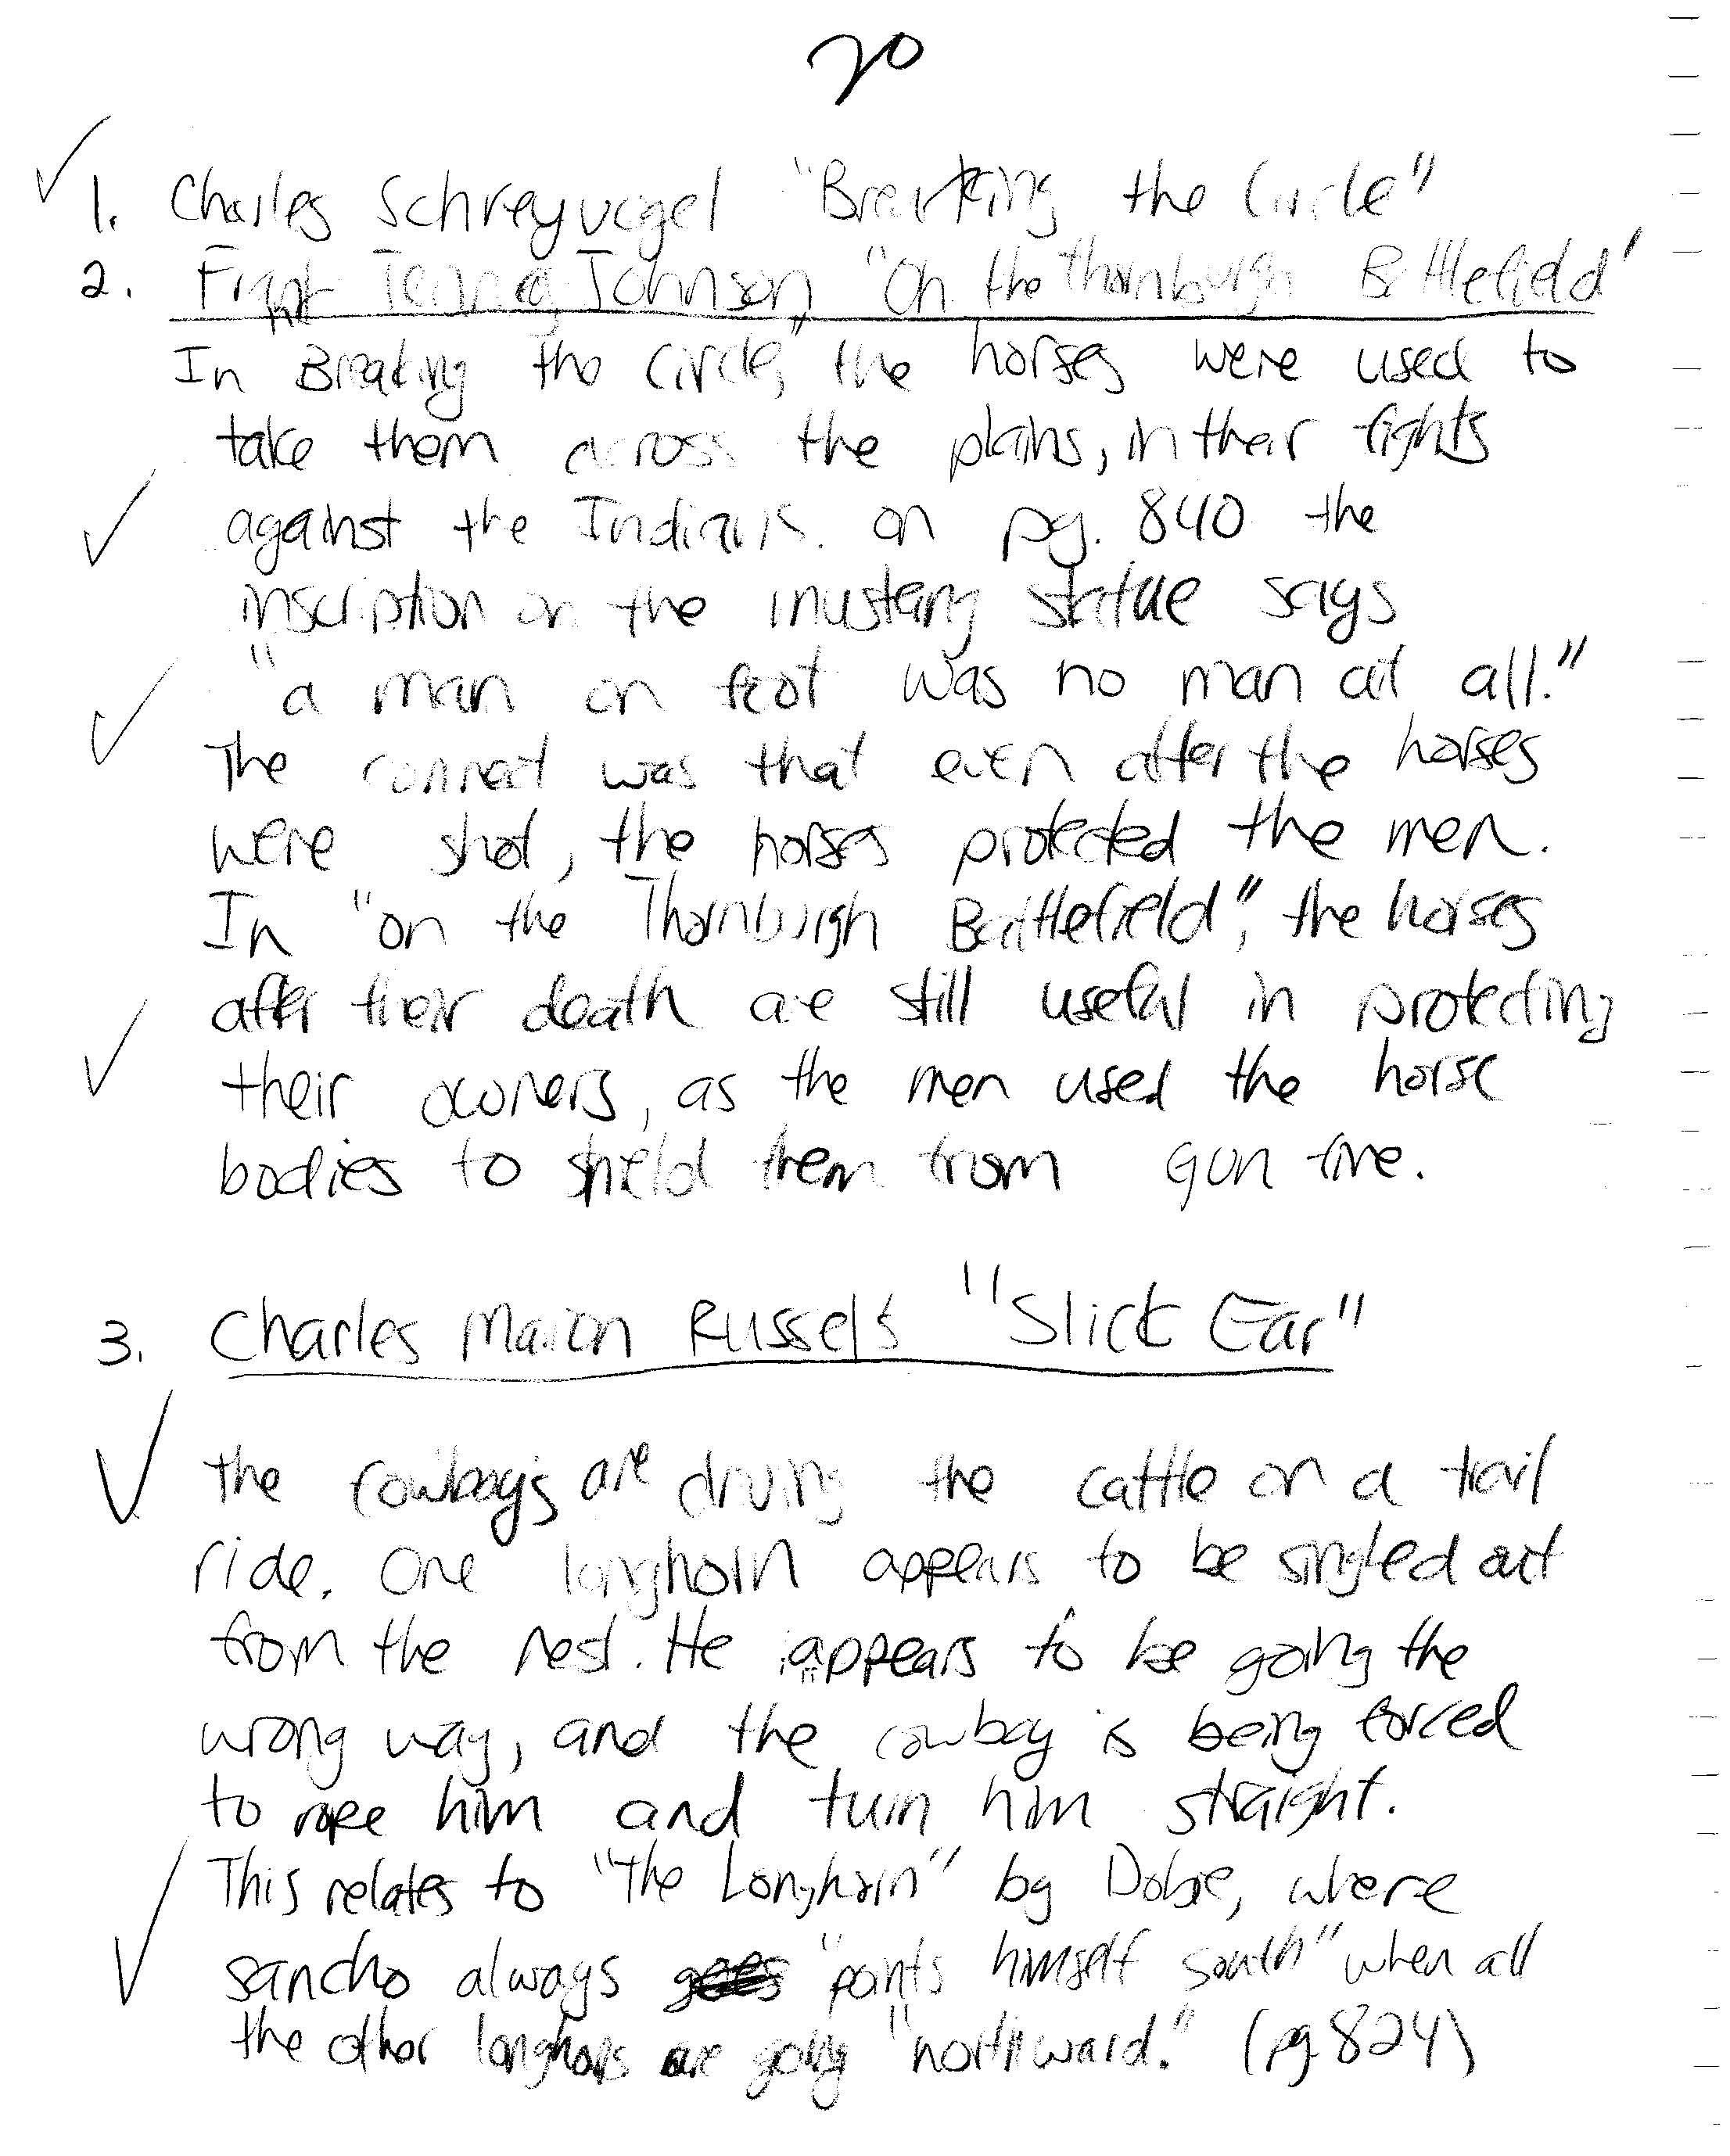 20
1. Charles Schreyvogel "Breaking the Circle"
2. Frank Tenney Johnson, "On the Thornburgh Battlefield"
In Breaking the Circle, the horses were used to
take them across the plains, in their fights
against the Indians. on pg. 840 the
inscription on the mustang statue says
"a man on foot was no man at all."
The connect was that even after the horses
were shot, the horses protected the men.
In "on the Thornburgh Battlefield", the horses
after their death are still useful in protecting
their owners, as the men used the horse
bodies to shield them from gun fire.
3. Charles Marion Russels "Slick Ear"
the cowboys are driving the cattle on a trail
ride. One longhorn appears to be singled out
from the rest. He appears to be going the
wrong way, and the cowboy is being forced
to rope him and turn him straight.
This relates to "The Longhorn" by Dobie, where
sancho always "points himself south" when all
the other longhorns are going "northward." (pg 824)